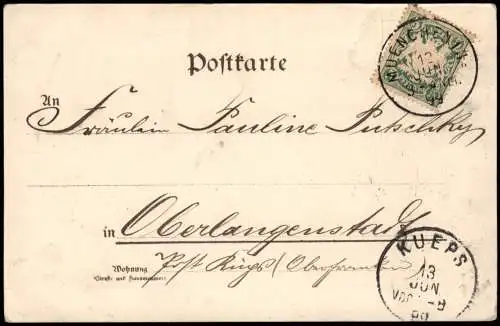 MUENCHEN
13
JUN
99
Postkarte
An
Fräulein Pauline Putschky
in Oberlangenstadt
Wohnung
(Straße und Hausnummer)
Post Küps (Oberfranken)
KUEPS
13
JUN
99